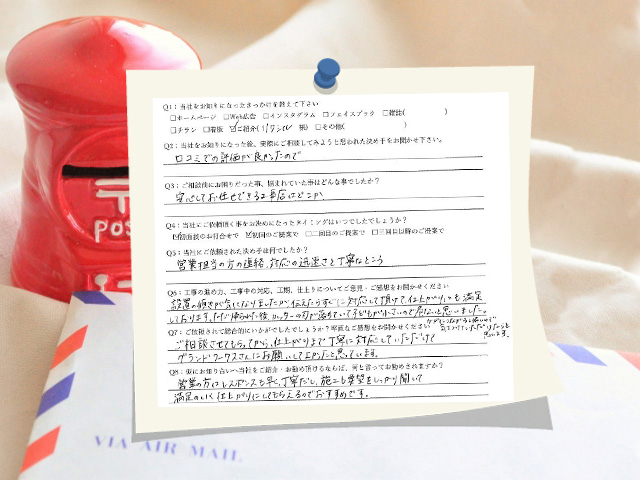 Q1：当社をお知りになったきっかけを教えて下さい
□ホームページ □Web広告 □インスタグラム □フェイスブック □雑誌( )
□チラシ □看板 ☑ご紹介( 様) □その他( )
Q2：当社をお知りになった後、実際にご相談してみようと思われた決め手をお聞かせ下さい。
口コミでの評価が良かったので
Q3：ご相談前にお困りだった事、悩まれていた事はどんな事でしたか？
安心してお任せできるお店はどこか、
Q4：当社にご依頼頂く事をお決めになったタイミングはいつでしたでしょうか？
☑初面談のお打合せで ☑初回のご提案で □二回目のご提案で □三回目以降のご提案で
Q5：当社にご依頼された決め手は何でしたか？
営業担当の方の連絡、対応の迅速さと丁寧なところ
Q6：工事の進め方、工事中の対応、工期、仕上りについてご意見・ご感想をお聞かせください
設置の傾きが気になりましたが伝えたらすぐに対応して頂けて、仕上がりも満足
しております。ただ帰られた後、カッターの刃が落ちていて子どもが小さいので危ないと思いました。
Q7：ご依頼されて総合的にいかがでしたでしょうか？率直なご感想をお聞かせください
ご相談させてもらってから、仕上がりまで丁寧に対応していただけて
グランドワークスさんにお願いして良かったと思っています。
Q8：仮にお知り合いへ当社をご紹介・お勧め頂けるならば、何と言ってお勧めされますか？
営業の方はレスポンスも早く、丁寧だし、施工も要望をしっかり聞いて
満足のいく仕上がりにしてもらえるのでおすすめです。
POS
VIA AIR MAIL